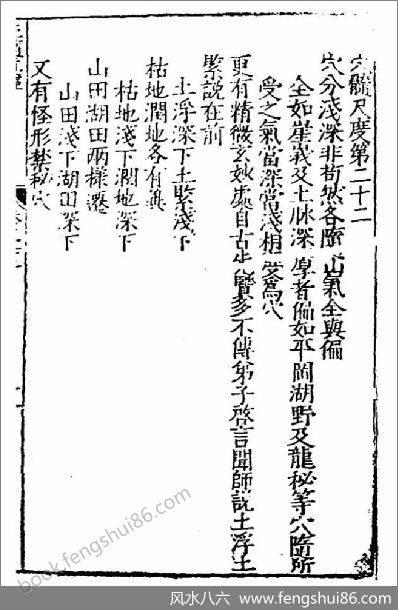 穴髓尺度第二十二
穴分淺深非苟然各隨山氣全與偏
全如崖峩及土脉深厚者偏如平岡湖野及龍秘等穴隨所
受之氣當深當淺相受爲穴
更有精微玄妙處自古先賢多不傳弟子啓言聞師説土浮土
緊説在前
土浮深下土緊淺下
枯地濶地各有異
枯地淺下濶地深下
山田湖田兩樣遷
山田淺下湖田深下
又有怪形禁秘穴
book.fengshui86.com
风水八六 | www.fengshui86.com